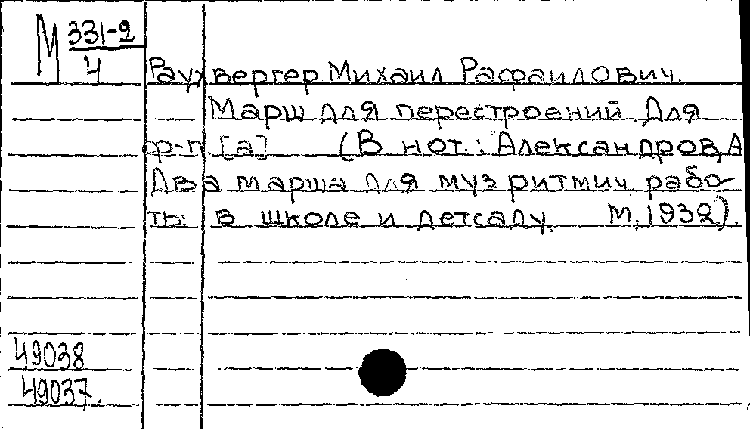 М 331-2
4
Раухвергер Михаил Рафаилович.
Марш для перестроений. Для
ф-п [а] (В нот.: Александров, А
Два марша для муз ритмич. рабо-
ты в школе и детсаду. М, 1932).
49038
49037.